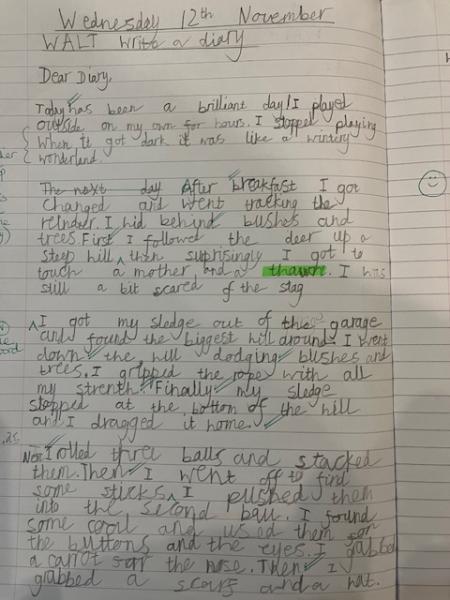 Wednesday 12th November
WALT write a diary
Dear Diary,
Today has been a brilliant day! I played
outside on my own for hours. I stopped playing
When it got dark it was like a wintery
wonderland.
The next day After breakfast I got
changed and went tracking the
reinder. I hid behind bushes and
trees. First I followed the deer up a
steep hill, then suprisingly I got to
touch a mother and a I was
still a bit scared of the stag
I got my sledge out of the garage
and found the biggest hill around. I went
down the hill dodging bushes and
trees. I gripped the rope with all
my strenth. Finally my sledge
stopped at the bottom of the hill
and I dragged it home.
Next I rolled three balls and stacked
them. Then I went off to find
some sticks. I pushed them
into the second ball. I found
some and used them for
the buttons and the eyes. I grabbed
a carrot for the nose. Then I
grabbed a scarf and a hat.